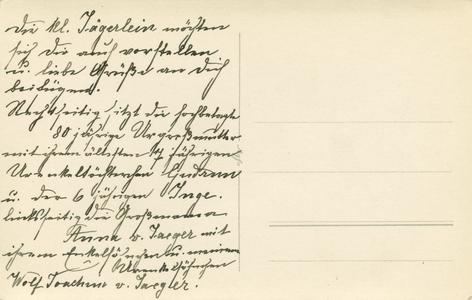 Die kl. Jägerlein möchten
sich Dir auch vorstellen
u. liebe Grüße an Dich
beifügen.
Rechtseitig sitzt die hochbetagte
80 jährige Urgroßmutter
mit ihrem ältesten 14 jährigen
Urenkeltöchterchen Gudrun
u. der 6 jährigen Inge.
linkseitig die Großmama
Anna v. Jaeger mit
ihrem Enkelsöhnchen u. meinem
Urenkelsöhnchen
Wolf Joachim v. Jaegler.